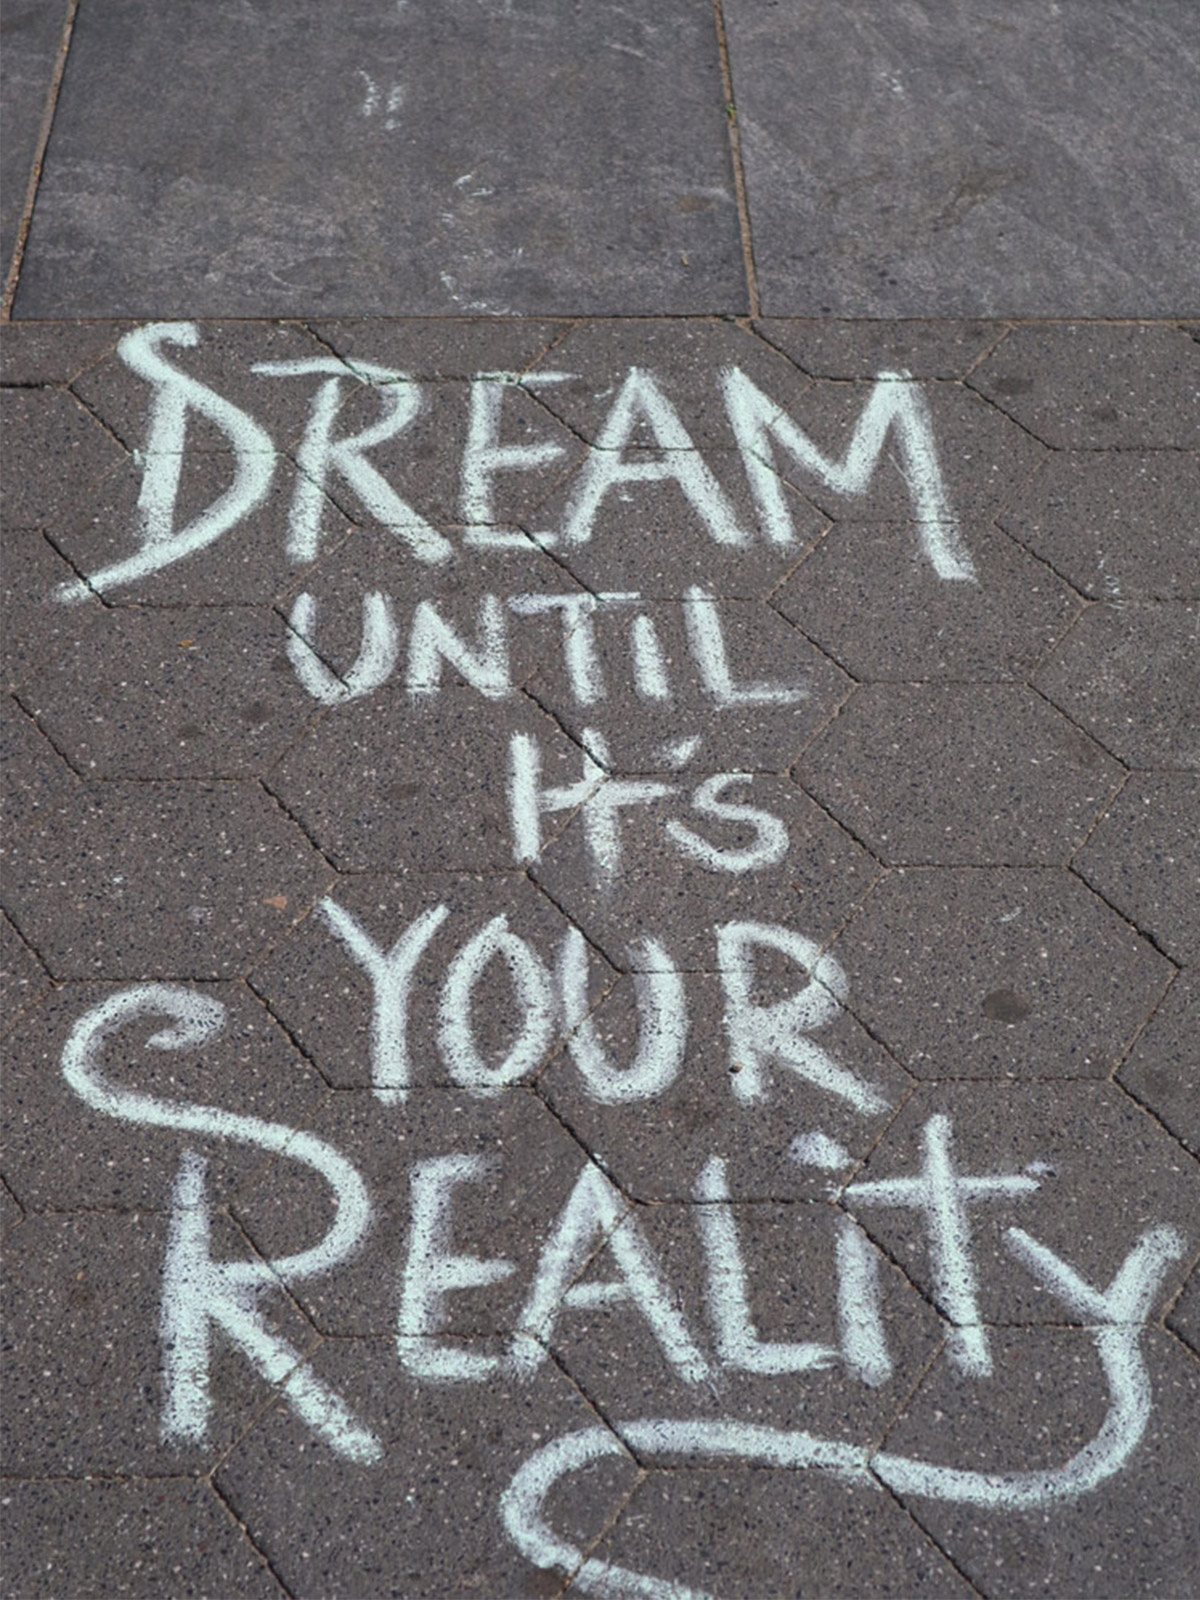 DREAM
UNTiL
It's
YOUR
REALity